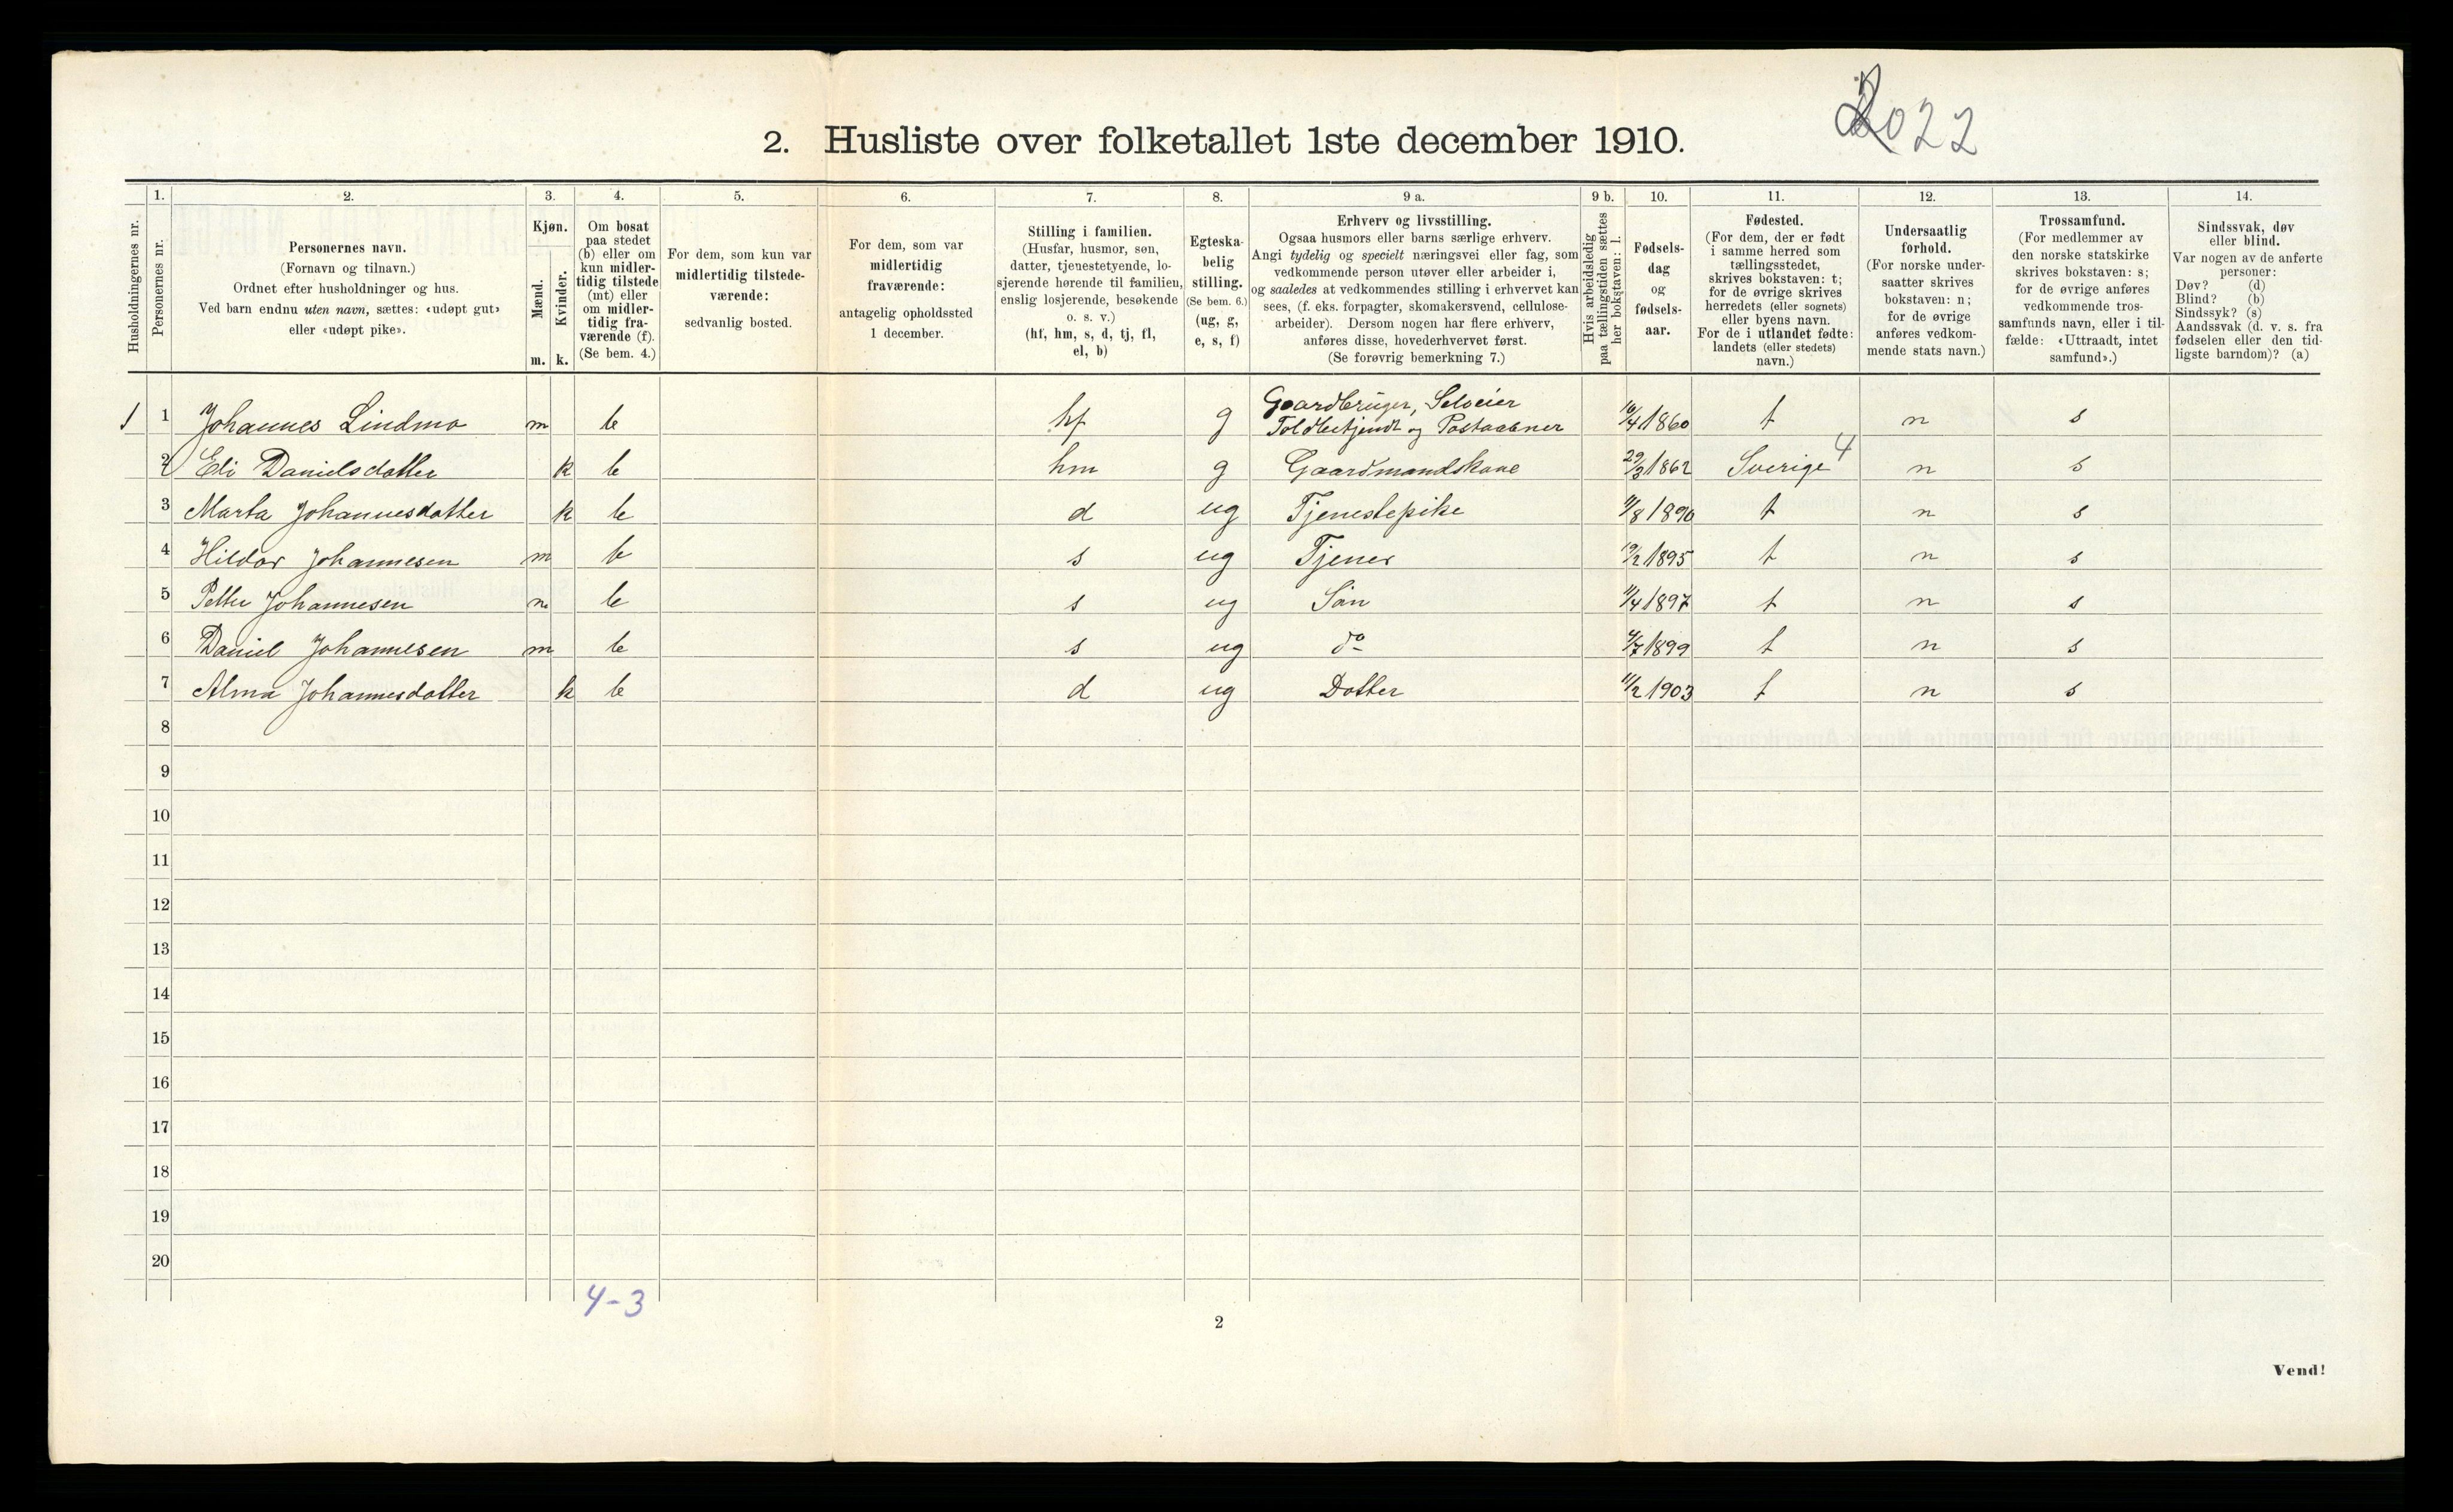 2022
2. Husliste over folketallet 1ste december 1910.
Husholdningernes nr.
1.
Personernes nr.
2.
Personernes navn.
(Fornavn og tilnavn.)
Ordnet efter husholdninger og hus.
Ved barn endnu uten navn, sættes: «udøpt gut»
eller «udøpt pike».
3.
Kjøn.
Mænd.
Kvinder.
m. k.
4.
Om bosat
paa stedet
(b) eller om
kun midler-
tidig tilstede
(mt) eller
om midler-
tidig fra-
værende (f).
(Se bem. 4.)
5.
For dem, som kun var
midlertidig tilstede-
værende:
sedvanlig bosted.
6.
For dem, som var
midlertidig
fraværende:
antagelig opholdssted
1 december.
7.
Stilling i familien.
(Husfar, husmor, søn,
datter, tjenestetyende, lo-
sjerende hørende til familien,
enslig losjerende, besøkende
o. s. v.)
(hf, hm, s, d, tj, fl,
el, b)
8.
Egteska-
belig
stilling.
(Se bem. 6.)
(ug, g,
e, s, f)
9 a.
Erhverv og livsstilling.
Ogsaa husmors eller barns særlige erhverv.
Angi tydelig og specielt næringsvei eller fag, som
vedkommende person utøver eller arbeider i,
og saaledes at vedkommendes stilling i erhvervet kan
sees, (f. eks. forpagter, skomakersvend, cellulose-
arbeider). Dersom nogen har flere erhverv,
anføres disse, hovederhvervet først.
(Se forøvrig bemerkning 7.)
9 b.
Hvis arbeidsledig
paa tællingstiden sættes
her bokstaven: l.
10.
Fødsels-
dag
og
fødsels-
aar.
11.
Fødested.
(For dem, der er født
i samme herred som
tællingsstedet,
skrives bokstaven: t;
for de øvrige skrives
herredets (eller sognets)
eller byens navn.
For de i utlandet fødte:
landets (eller stedets)
navn.)
12.
Undersaatlig
forhold.
(For norske under-
saatter skrives
bokstaven: n;
for de øvrige
anføres vedkom-
mende stats navn.)
13.
Trossamfund.
(For medlemmer av
den norske statskirke
skrives bokstaven: s;
for de øvrige anføres
vedkommende tros-
samfunds navn, eller i til-
fælde: «Uttraadt, intet
samfund».)
14.
Sindssvak, døv
eller blind.
Var nogen av de anførte
personer:
Døv? (d)
Blind? (b)
Sindssyk? (s)
Aandssvak (d. v. s. fra
fødselen eller den tid-
ligste barndom)? (a)
1 1 Johannes Lindmo m b hf g Gaardbruger, Selveier Toldbetjendt og Postaabner 16/4 1860 t n s
2 Eli Danielsdatter k b hm g Gaardmandskone 29/3 1862 Sverige 4 n s
3 Marta Johannesdatter k b d ug Tjenestepike 11/8 1890 t n s
4 Hildor Johannesen m b s ug Tjener 19/2 1895 t n s
5 Petter Johannesen m b s ug Søn 11/4 1897 t n s
6 Daniel Johannesen m b s ug do 4/7 1899 t n s
7 Alma Johannesdatter k b d ug Datter 11/2 1903 t n s
8
9
10
11
12
13
14
15
16
17
18
19
20
4-3
2
Vend!